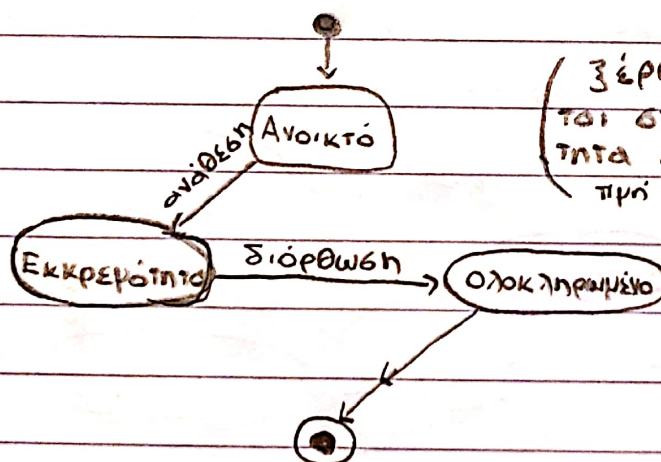 Ανοικτό
ανάθεση
Εκκρεμότητα
διόρθωση
Ολοκληρωμένο
τητα